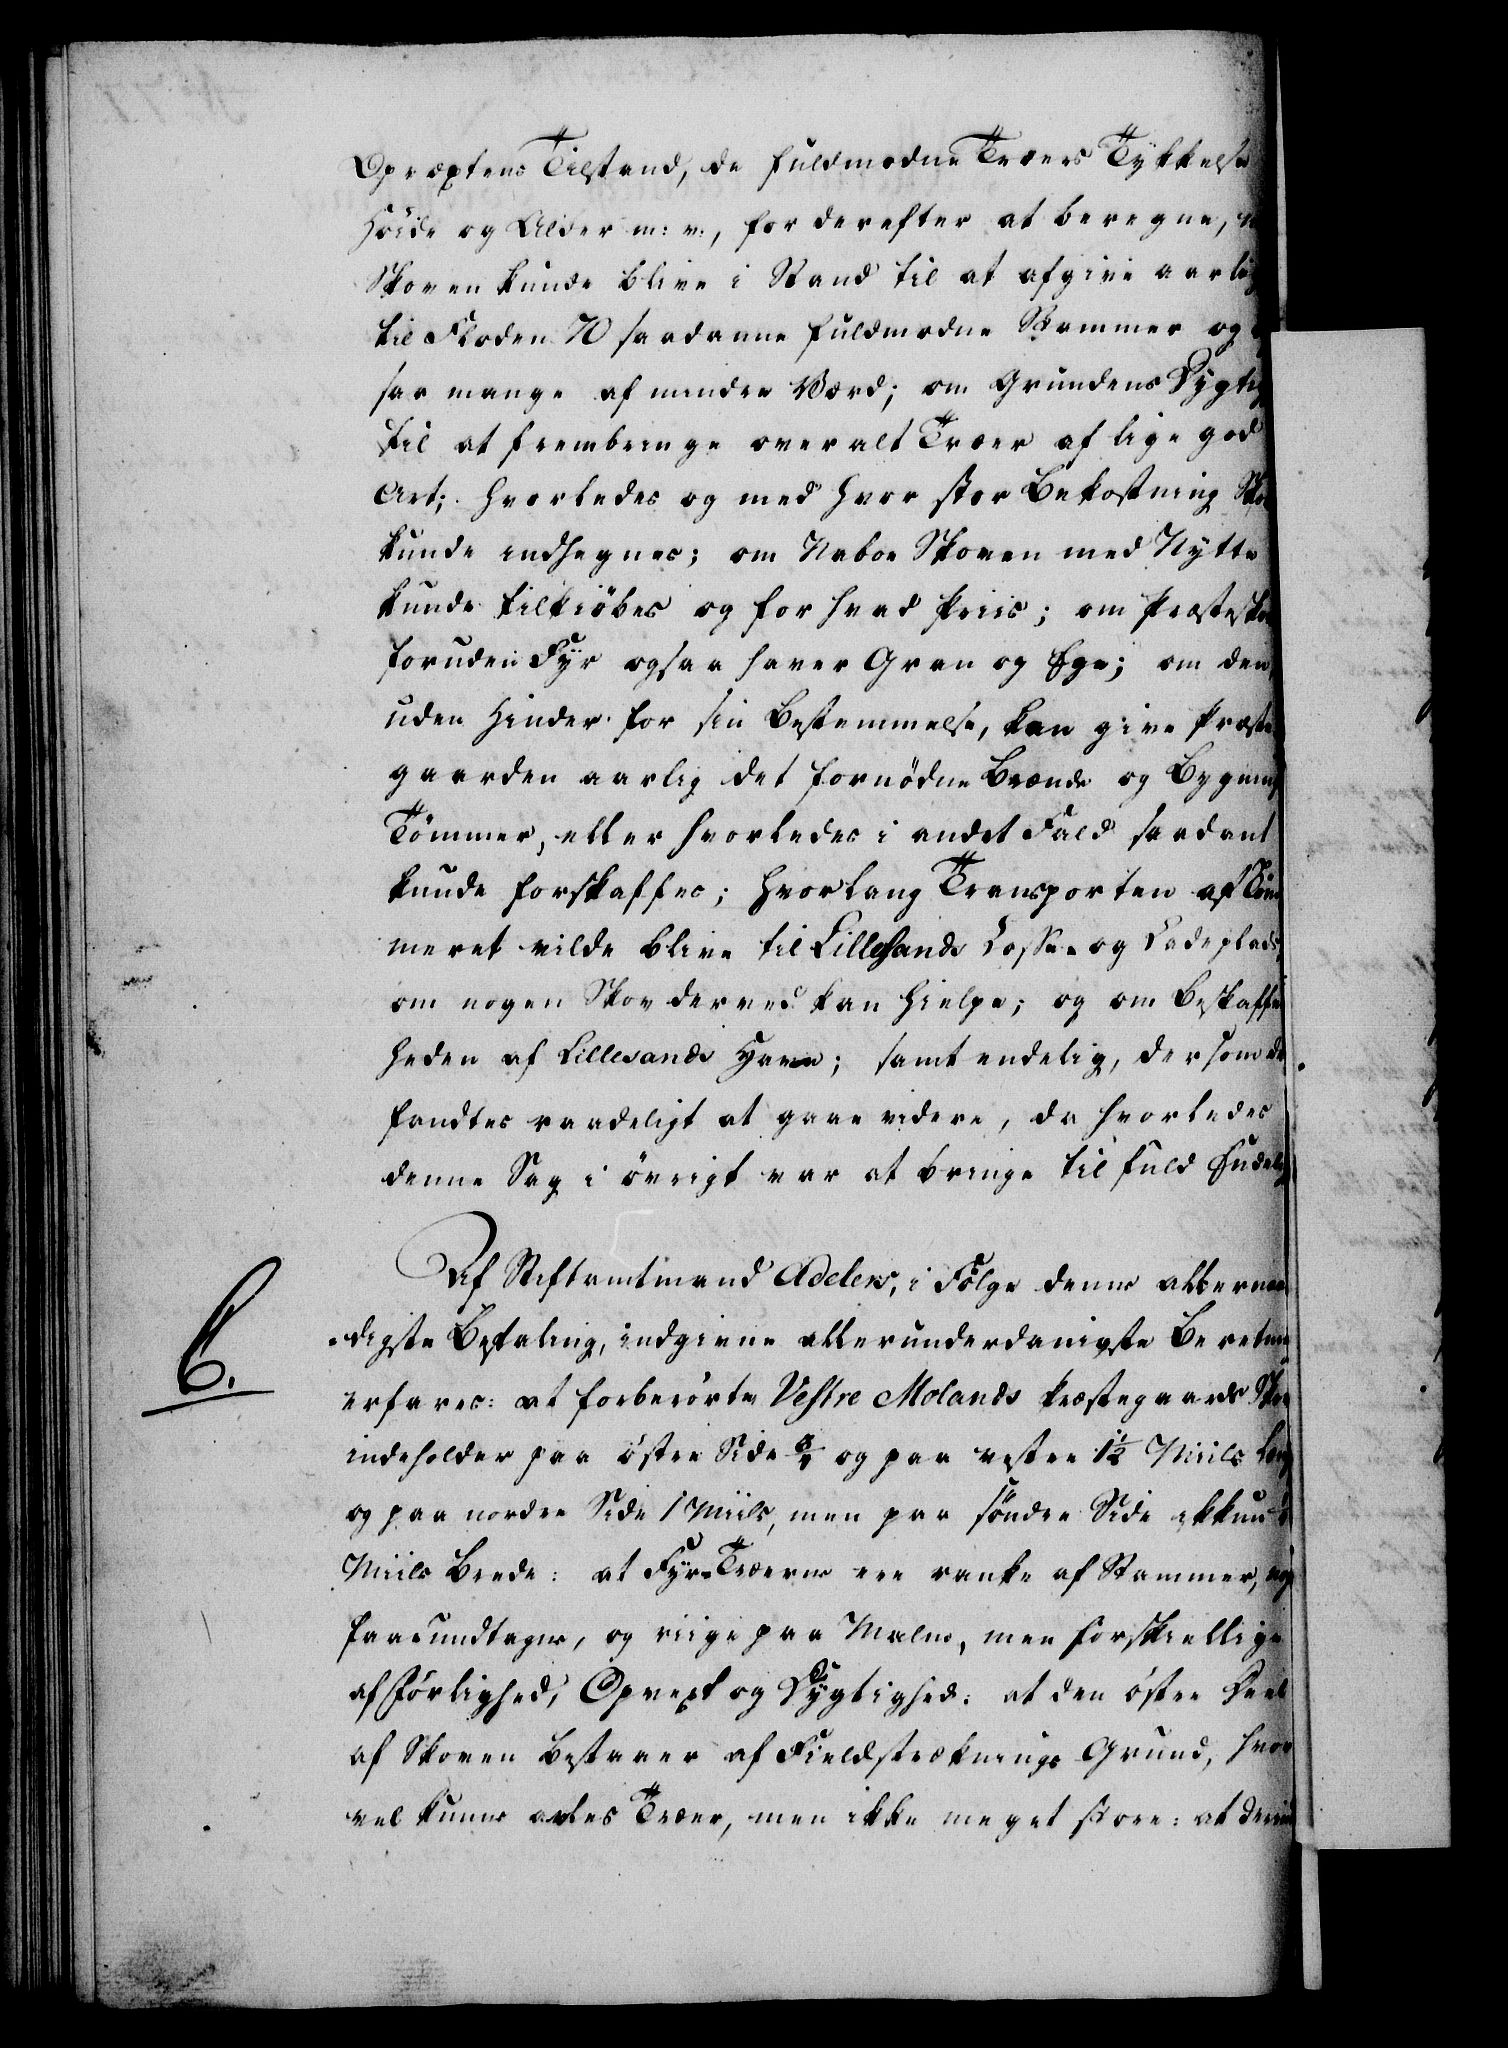 Opvæxtens Tilstand, de fuldmodne Træers Tykkelse
Höide og Alder m: v:, for derefter at beregne,
Skoven kunde blive i Stand til at afgive aarlig
til Floden 70 saadanne fuldmodne Stammer og
saa mange af mindre Værd; om Grundens Dygtig
til at frembringe overalt Træer af lige god
Art; hvorledes og med hvor stor Bekostning Sko
kunde indhegnes; om Naboe Skoven med Nytte
kunde tilkiöbes og for hvad Priis; om Præsteskov
foruden Fÿr ogsaa haver Gran og Ege; om den
uden Hinder for sin Bestemmelse, kan give Præste
gaarden aarlig det fornödne Brænde og Bygnings
Tömmer, eller hvorledes i andet Fald saadant
kunde forskaffes; hvorlang Transporten af Töm
meret vilde blive til Lillesands Losse- og Ladeplads,
om nogen Skov derved kan hielpe; og om Beskaffen
heden af Lillesands Havn; samt endelig, dersom det
fandtes raadeligt at gaae videre, da hvorledes
denne Sag i övrigt var at bringe til fuld Endelig
Af Stiftamtmand Adelers, i Fölge denne allernaa
6.
digste Befaling, indgivne allerunderdanigste Beretning
erfares: at forberörte Vestre Molands Præstegaards Skov
indeholder paa östre Side 3/4 og paa vestre 1 1/2 Miils Læng
og paa nordre Side 1 Miils, men paa söndre Side ikkun
Miils Brede: at Fyr-Træerne ere ranke af Stammer, nog
faa undtagne, og riige paa Malm, men forskiellige
af Förlighed, Opvext og Dygtighed: at den östre Deel
af Skoven bestaaer af Fieldstræknings Grund, hvor
vel kunne avles Træer, men ikke meget store: at derimod